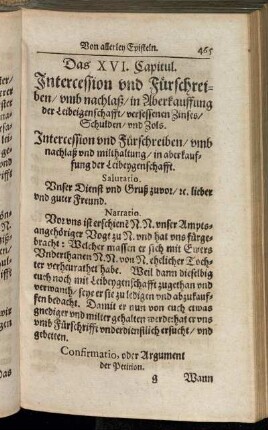 Von allerley Episteln. 465
Das XVI. Capitul.
Intercession vnd Fürschrei-
ben/ vmb nachlaß/ in Aberkauffung
der Leibeigenschafft/ versessenen Zinses/
Schulden/ vnd Zols.
Intercession vnd Fürschreiben/ vmb
nachlaß vnd milthaltung/ in aberkauf-
fung der Leibeygenschafft.
Salutatio.
Vnser Dienst vnd Gruß zuvor/ ꝛc. lieber
vnd guter Freund.
Narratio.
Vor vns ist erschient N. N. vnser Ampts-
angehöriger Vogt zu N. vnd hat vns fürge-
bracht: Welcher massen er sich mit Ewers
Vnderthanen N. N. von N. ehelicher Toch-
ter verheurathet habe. Weil dann dieselbig
euch noch mit Leibeygenschafft zugethan vnd
verwandt/ seye er sie zu ledigen vnd abzukauf-
fen bedacht. Damit er nun von euch etwas
gnediger vnd milter gehalten werde/ hat er vns
vmb Fürschrifft vnderdienstlich ersucht/ vnd
gebetten.
Confirmatio, oder Argument
der Petition.
g Wann